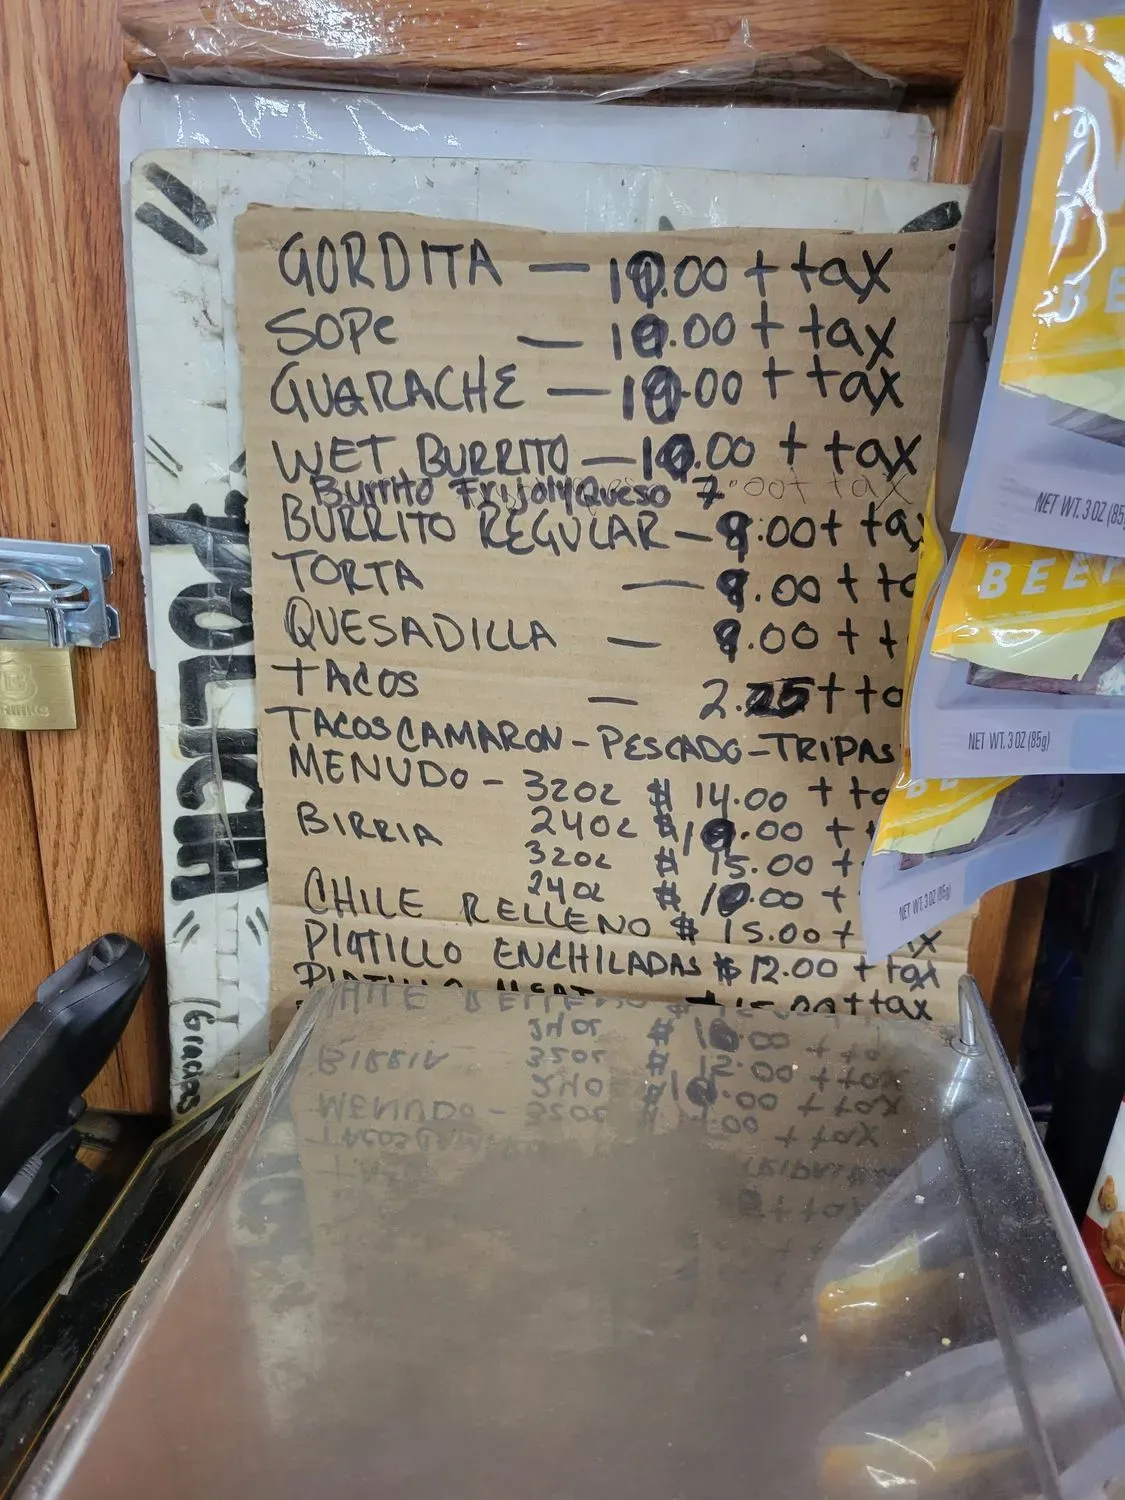 GORDITA — 10.00 + tax
SOPE — 10.00 + tax
GUARACHE — 10.00 + tax
WET BURRITO — 10.00 + tax
Burrito Frijol y Queso 7.00 + tax
BURRITO REGULAR — 9.00 + tax
TORTA — 9.00 + ta
QUESADILLA — 9.00 + t
TACOS — 2.25 + ta
TACOS CAMARON - PESCADO - TRIPAS
MENUDO - 32oz $ 14.00 + ta
24oz $ 10.00 + t
BIRRIA 32oz $ 15.00 +
24oz $ 10.00 +
CHILE RELLENO $ 15.00 + ax
PLATILLO ENCHILADAS $ 12.00 + tax
POLICIA
Gracias
NET WT. 3 OZ (85
BEEF
NET WT. 3 OZ (85g)
NET WT. 3 OZ (85g)